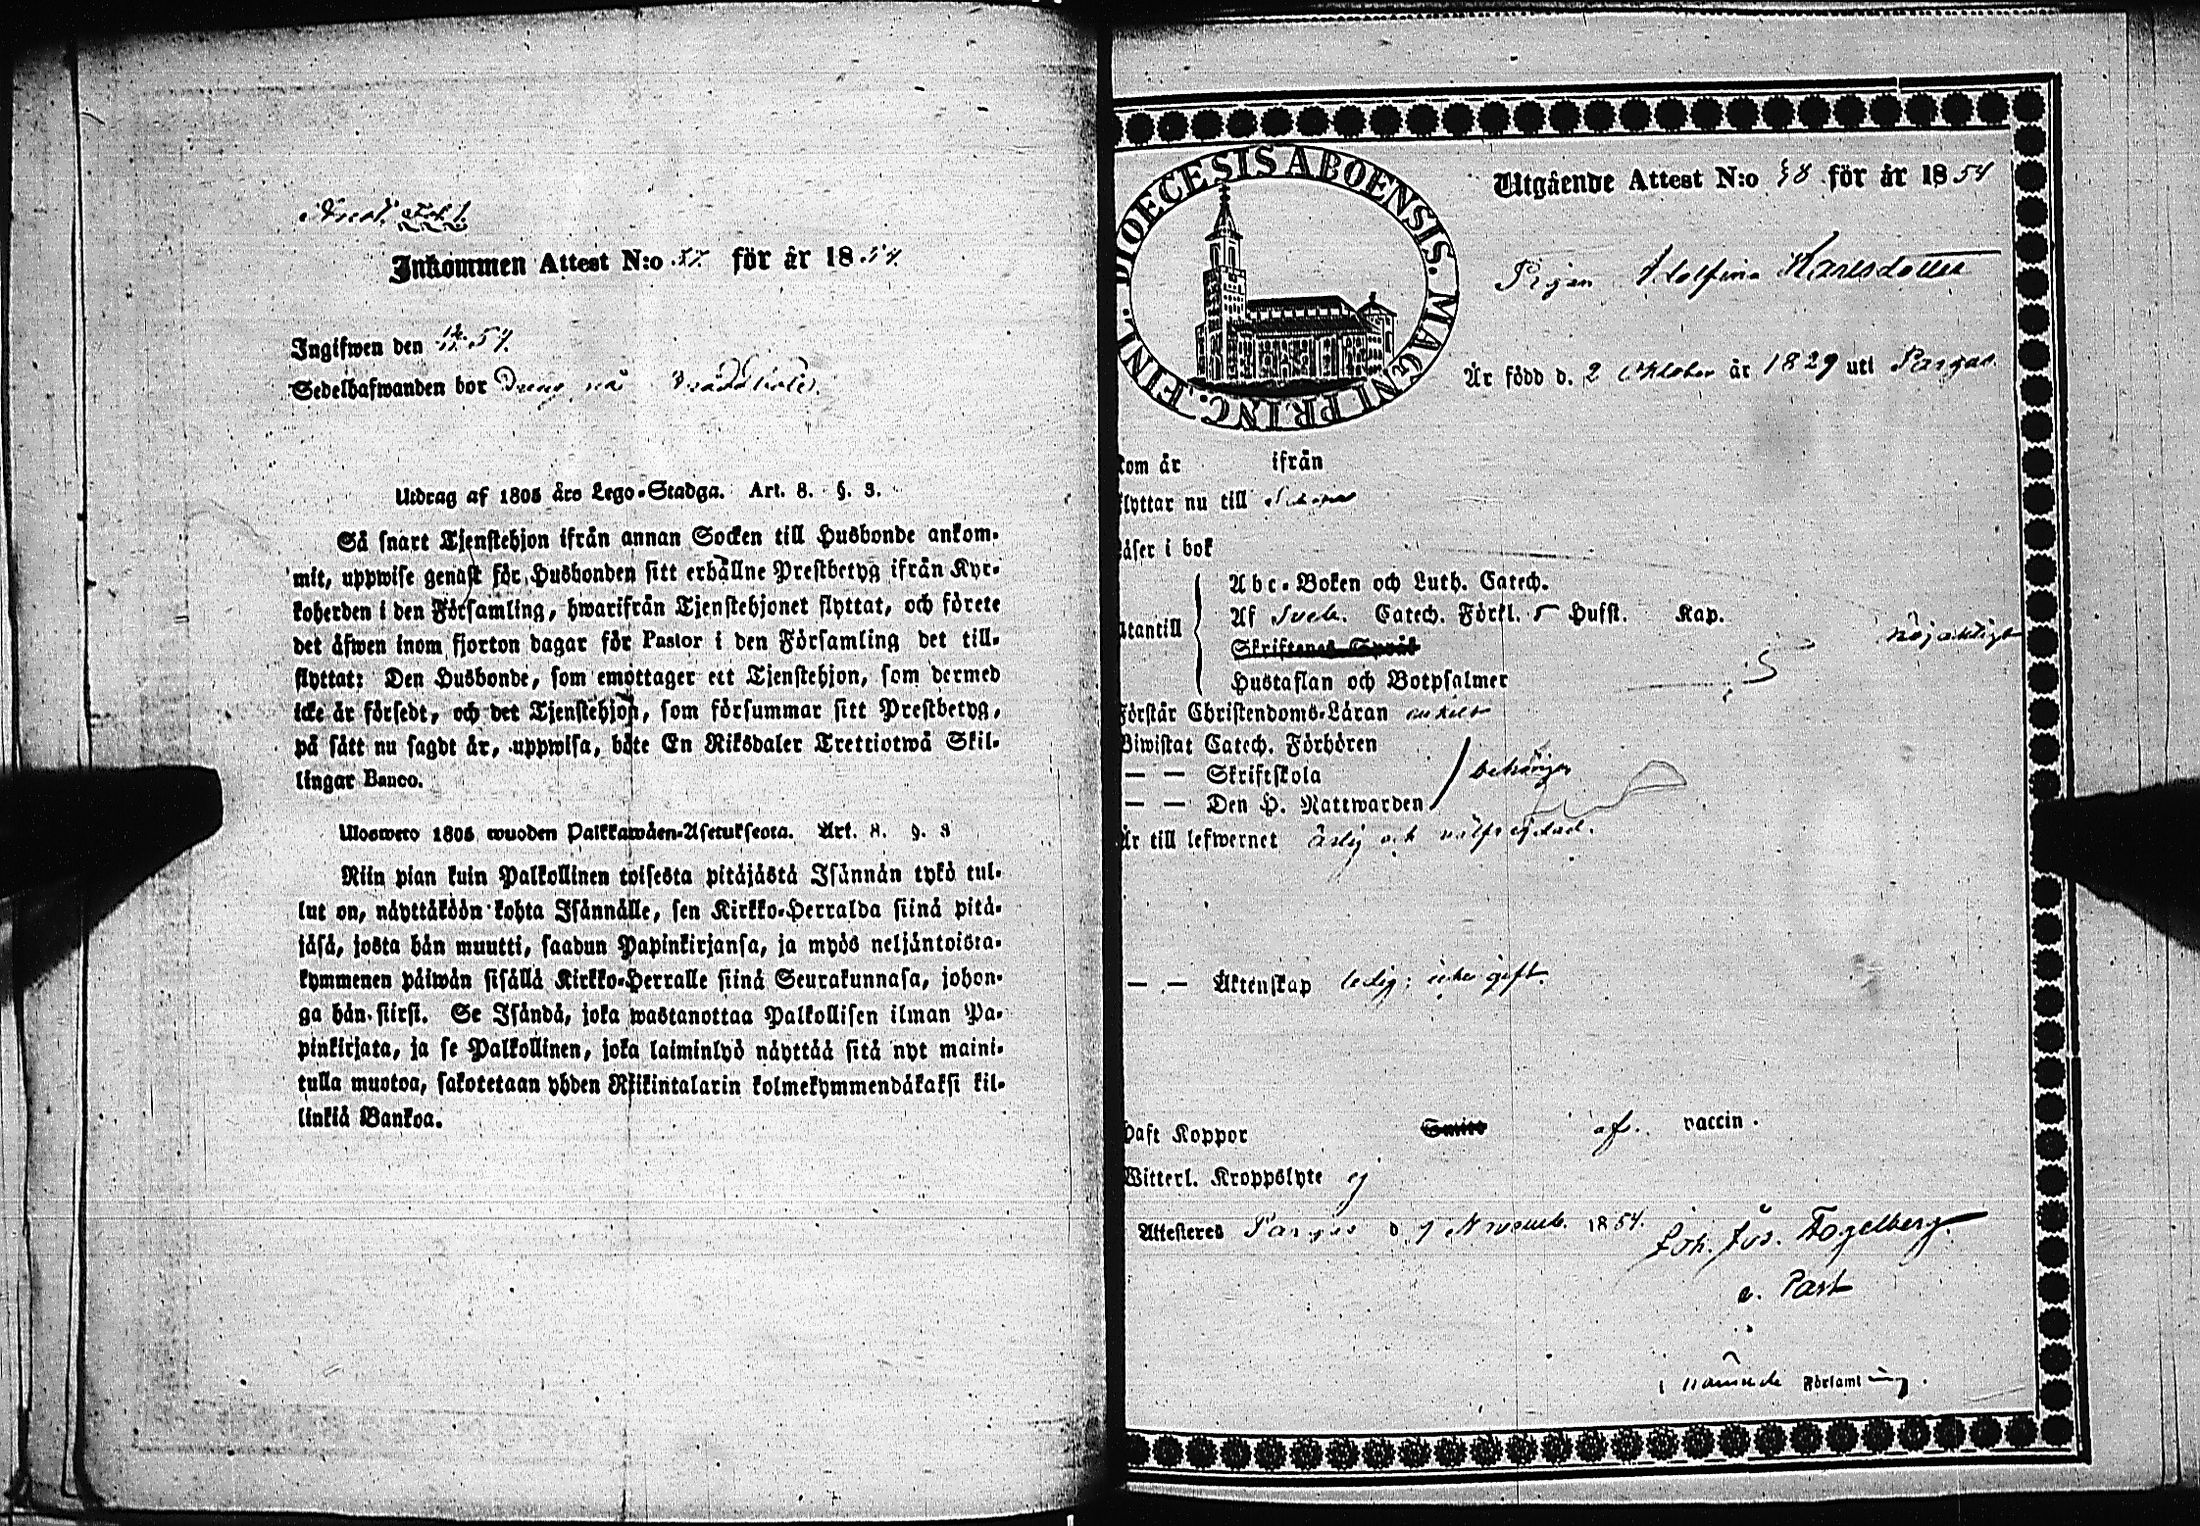 Inkommen Attest N:o för år 1854.
Ingifwen den 54.
Sedelhafwanden bor Dreng på
Utdrag af 1805 års Lego-Stadga. Art. 8. §. 3.
Så snart Tjenstehjon ifrån annan Socken till Husbonde ankom-
mit, uppwise genast för Husbonden sitt erhållne Prestbetyg ifrån Kyr-
koherden i den Församling, hwarifrån Tjenstehjonet flyttat, och förete
det äfwen inom fjorton dagar för Pastor i den Församling det till-
flyttat: Den Husbonde, som emottager ett Tjenstehjon, som dermed
icke är försedt, och det Tjenstehjon, som försummar sitt Prestbetyg,
på sätt nu sagdt är, uppwisa, böte En Riksdaler Trettiotwå Skil-
lingar Banco.
Ulosweto 1805 wuoden Palkkawäen-Asetuksesta. Art. 8. §. 3
Niin pian kuin Palkollinen toisesta pitäjästä Isännän tykö tul-
lut on, näyttäköön kohta Isännälle, sen Kirkko-Herralda siinä pitä-
jäsä, josta hän muutti, saadun Papinkirjansa, ja myös neljäntoista-
kymmenen päiwän sisällä Kirkko-Herralle siinä Seurakunnasa, johon-
ga hän siirsi. Se Isändä, joka wastanottaa Palkollisen ilman Pa-
pinkirjata, ja se Palkollinen, joka laiminlyö näyttää sitä nyt maini-
tulla muotoa, sakotetaan yhden Riikintalarin kolmekymmendäkaksi kil-
linkiä Bankoa.
DIOECESIS ABOENSIS. MAGNI PRINC. FINL.
Utgående Attest N:o 98 för år 1854
Pigan Adolfina Karlsdotter
Är född d. 2 Oktober år 1829 uti Pargas.
kom år ifrån
flyttar nu till
Läser i bok
Abc-Boken och Luth. Catech.
Utantill Af Sveb. Catech. Förkl. 5 Hufst. Kap. nöjaktigt
Skriftenes Språk
Hustaflan och Botpsalmer
Förstår Christendoms-Läran enkelt
Biwistat Catech. Förhören
— — Skriftskola behörigen
— — Den H. Nattwarden
Är till lefwernet ärlig och välfrejdad.
— — Äktenskap ledig; icke gift.
Haft Koppor Smitt af vaccin.
Witterl. Kroppslyte ej
Attesteres Pargas d. 1 Novemb. 1854. Joh. Jos. Fogelberg
v. Past
i nämnde Församling.